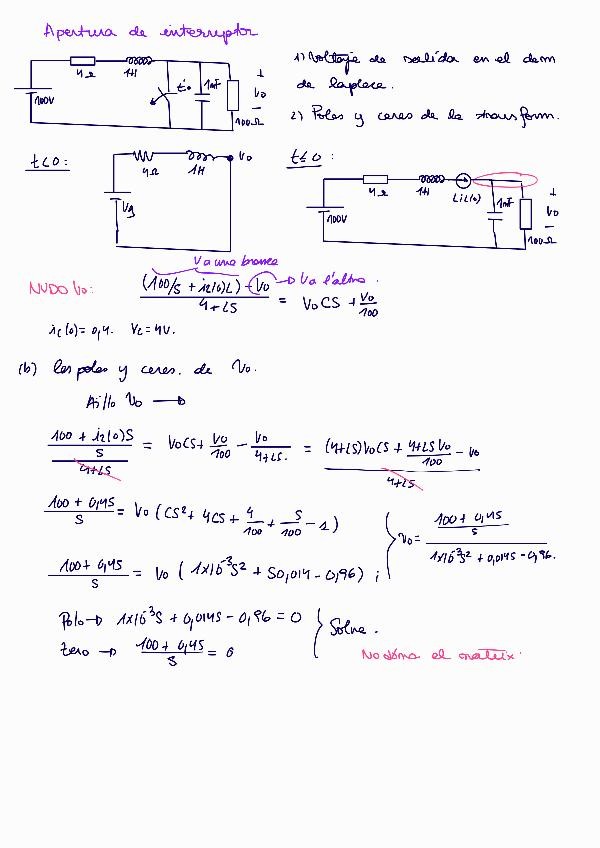 Apertura de interruptor
4Ω 1H t=0 1mF + Vo - 100V 100Ω
1) Voltaje de salida en el dom
de laplace.
2) Polos y ceros de la transform.
t<0: 4Ω 1H Vo Vg
t≤0: 4Ω 1H LiL(0) 1mF + Vo - 100V 100Ω
Va una branca
NUDO Vo: (100/S + iL(0)L) - Vo / 4+LS = VoCS + Vo/100 → Va l'altra.
iL(0) = 0,4. VL = 4V.
(b) los polos y ceros. de Vo.
Aillo Vo →
100 + iL(0)S / S / 4+LS = VoCS + Vo/100 - Vo/4+LS. = (4+LS)VoCS + 4+LS Vo/100 - Vo / 4+LS
100 + 0,4S / S = Vo (CS² + 4CS + 4/100 + S/100 - 1)
Vo = 100 + 0,4S / S / 1x10⁻³S² + 0,014S - 0,96.
100 + 0,4S / S = Vo ( 1x10⁻³S² + S0,014 - 0,96) ;
Polo → 1x10⁻³S + 0,014S - 0,96 = 0
Zero → 100 + 0,4S / S = 0
Solve.
No dóna el mateix.